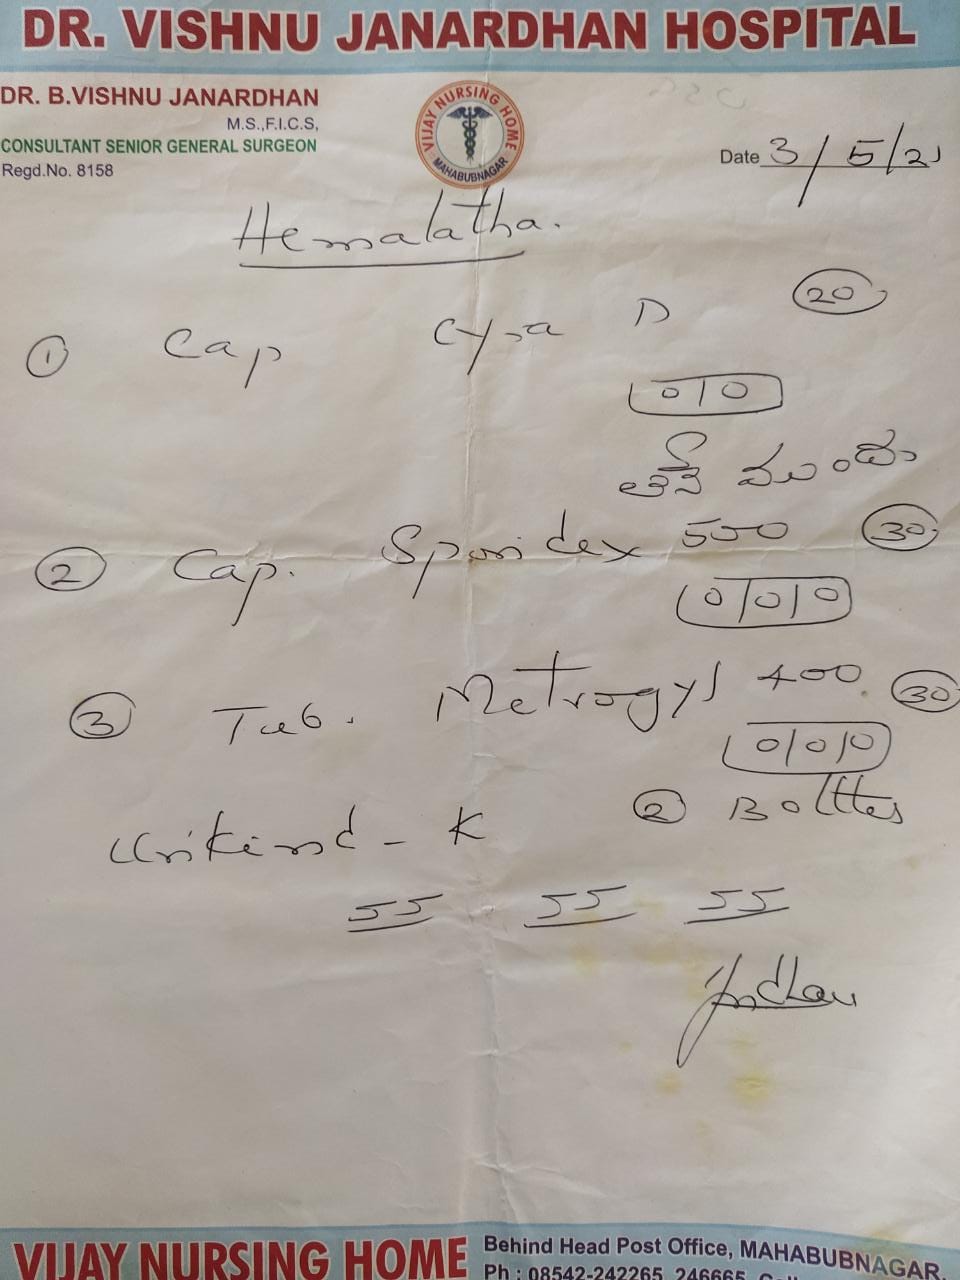 DR. VISHNU JANARDHAN HOSPITAL
DR. B.VISHNU JANARDHAN
M.S.,F.I.C.S,
CONSULTANT SENIOR GENERAL SURGEON
Regd.No. 8158
VIJAY NURSING HOME
MAHABUBNAGAR
Date 3/5/21
Hemalatha.
① Cap Cyra D ⑳
0/0
తినే ముందు
② Cap. Sporidex 500 ㉚
0/0/0
③ Tab. Metrogyl 400 ㉚
0/0/0
Urikind - K ② Bolttes
55 55 55
VIJAY NURSING HOME
Behind Head Post Office, MAHABUBNAGAR.
Ph : 08542-242265, 246665,